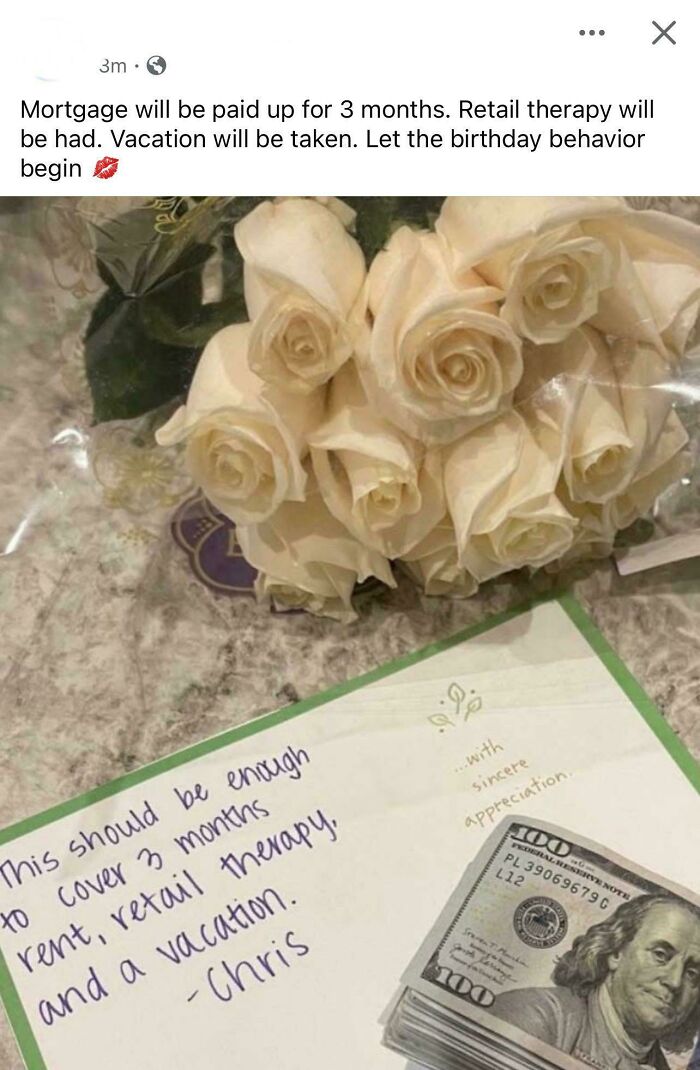 3m
Mortgage will be paid up for 3 months. Retail therapy will
be had. Vacation will be taken. Let the birthday behavior
begin 💋
...with
sincere
appreciation.
This should be enough
to cover 3 months
rent, retail therapy,
and a vacation.
-Chris
100
FEDERAL RESERVE NOTE
PL 39069679 G
L12
100